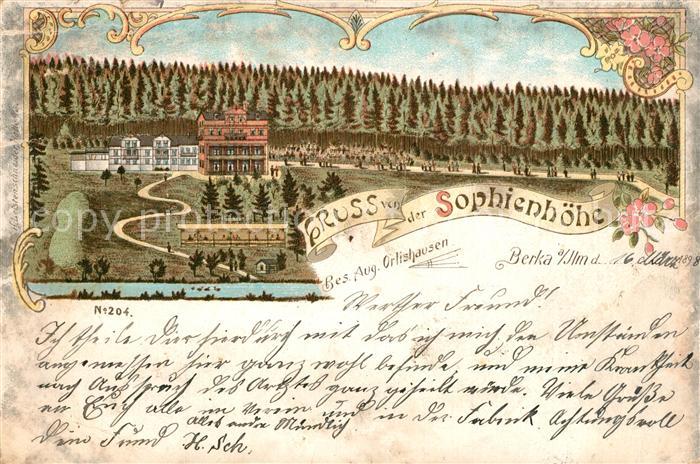 GRUSS von der Sophienhöhe
Bes. Aug. Orlishausen
Berka a/Ilm d. 16. März 1898
No 204.
Werther Freund!
Ich theile Dir hierdurch mit das ich mich den Umständen
angemessen hier ganz wohl befinde, und meine Krankheit
nach Ausspruch des Arztes ganz geheilt würde. Viele Grüße
an Euch alle im Verein und in der Fabrik. Achtungsvoll
Dein Freund H. Sch.
alles andre Mündlich